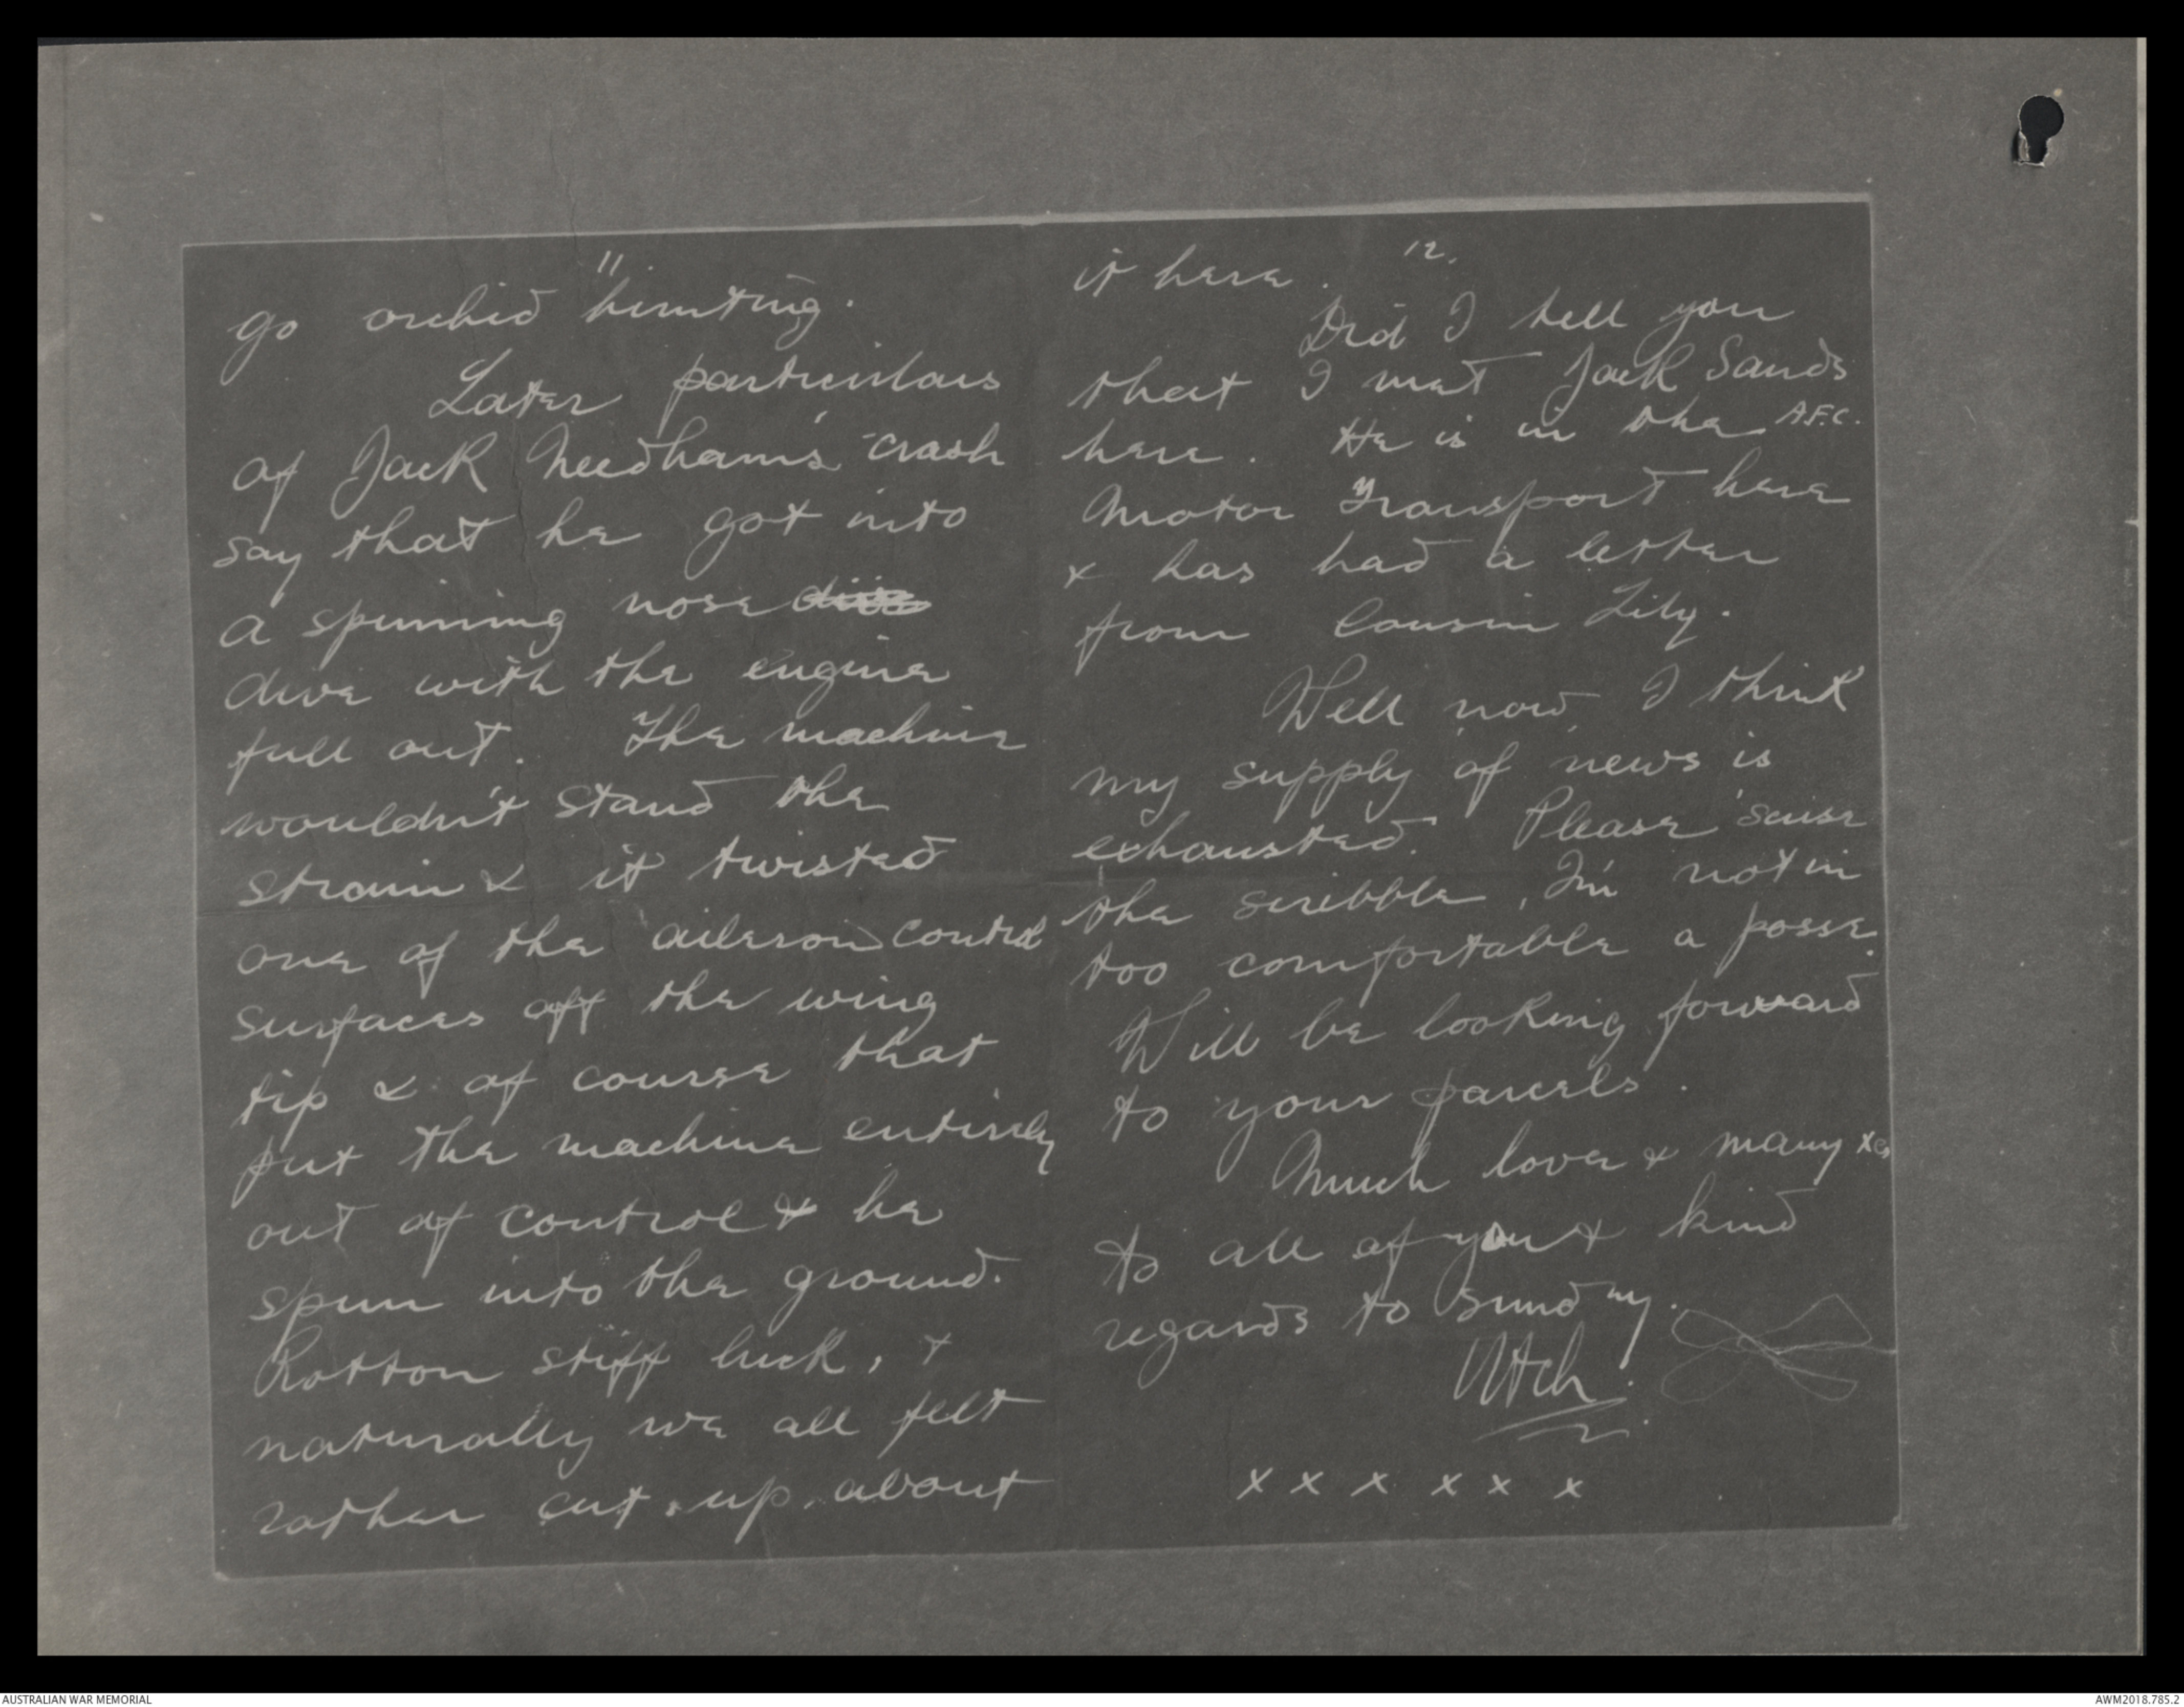 11.
go orchid hunting.
Later particulars
of Jack Needham's crash
say that he got into
a spinning nose dive
dive with the engine
full out. The machine
wouldn't stand the
strain & it twisted
one of the aileron control
surfaces off the wing
tip & of course that
put the machine entirely
out of control & he
spun into the ground.
Rotton stiff luck, &
naturally we all felt
rather cut up about
12.
it here.
Did I tell you
that I met Jack Sands
here. He is in the A.F.C.
Motor Transport here
& has had a letter
from Cousin Lily.
Well now, I think
my supply of news is
exhausted. Please 'scuse
the scribble, I'm not in
too comfortable a posse.
Will be looking forward
to your parcels.
Much love & many xes
to all of you & kind
regards to Sundry.
x x x x x x
AUSTRALIAN WAR MEMORIAL
AWM2018.785.2